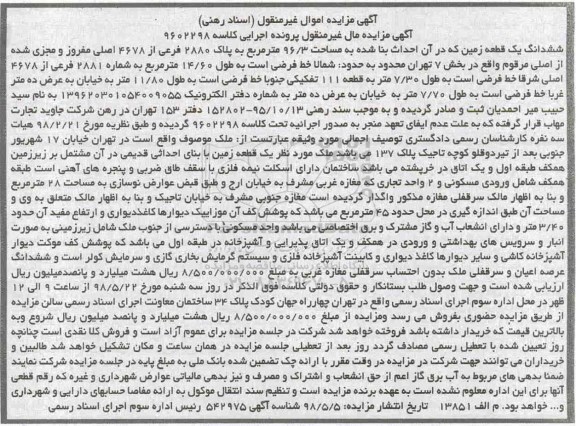 آگهی مزایده اموال غیرمنقول (اسناد رهنی)
آگهی مزایده مال غیرمنقول پرونده اجرایی کلاسه ۹۶۰۲۲۹۸
ششدانگ یک قطعه زمین که در آن احداث بنا شده به مساحت ۹۶/۳ مترمربع به پلاک ۲۸۸۰ فرعی از ۴۶۷۸ اصلی مفروز و مجزی شده
از اصلی مرقوم واقع در بخش ۷ تهران محدود به حدود: شمالا خط فرضی است به طول ۱۴/۶۰ مترمربع به شماره ۲۸۸۱ فرعی از ۴۶۷۸
اصلی شرقا خط فرضی است به طول ۷/۳۰ متر به قطعه ۱۱۱ تفکیکی جنوبا خط فرضی است به طول ۱۱/۸۰ متر به خیابان به عرض ده متر
غربا خط فرضی است به طول ۷/۷۰ متر به خیابان به عرض ده متر به شماره دفتر الکترونیک ۱۳۹۶۲۰۳۰۱۰۵۴۰۰۹۰۵۵ به نام سید
حبیب میر احمدیان ثبت و صادر گردیده و به موجب سند رهنی ۹۵/۱۰/۱۳-۱۵۲۸۰۲ دفتر ۱۵۳ تهران در رهن شرکت جاوید تجارت
مهاب قرار گرفته که به علت عدم ایفای تعهد منجر به صدور اجرائیه تحت کلاسه ۹۶۰۲۲۹۸ گردیده و طبق نظریه مورخ ۹۸/۲/۲۱ هیات
سه نفره کارشناسان رسمی دادگستری توصیف اجمالی مورد وثیقه عبارتست از: ملک موصوف واقع است در تهران خیابان ۱۷ شهریور
جنوبی بعد از تیردوقلو کوچه تاجیک پلاک ۱۳۷ می باشد ملک مورد نظر یک قطعه زمین با بنای احداثی قدیمی در آن مشتمل بر زیرزمین
همکف طبقه اول و یک اتاق در خرپشته می باشد ساختمان دارای اسکلت نیمه فلزی با سقف طاق ضربی و پنجره های آهنی است طبقه
همکف شامل ورودی مسکونی و ۲ واحد تجاری که مغازه غربی مشرف به خیابان ارج و طبق قبض عوارض نوسازی به مساحت ۲۸ مترمربع
و بنا به اظهار مالک سرقفلی مغازه مذکور واگذار گردیده است مغازه جنوبی مشرف به خیابان تاجیک و بنا به اظهار مالک متعلق به وی و
مساحت آن طبق اندازه گیری در محل حدود ۴۵ مترمربع می باشد که پوشش کف آن موزاییک دیوارها کاغذدیواری و ارتفاع مفید آن حدود
۳/۴۰ متر و دارای انشعاب آب و گاز مشترک و برق اختصاصی می باشد واحد مسکونی با دسترسی از جنوب ملک شامل زیرزمینی به صورت
انبار و سرویس های بهداشتی و ورودی در همکف و یک اتاق پذیرایی و آشپزخانه در طبقه اول می باشد که پوشش کف موکت دیوار
آشپزخانه کاشی و سایر دیوارها کاغذ دیواری و کابینت آشپزخانه فلزی و سیستم گرمایش بخاری گازی و سرمایش کولر است و ششدانگ
عرصه اعیان و سرقفلی ملک بدون احتساب سرقفلی مغازه غربی به مبلغ ۸/۵۰۰/۰۰۰/۰۰۰ ریال هشت میلیارد و پانصدمیلیون ریال
ارزیابی شده است و جهت وصول طلب بستانکار و حقوق دولتی کلاسه فوق الذکر در روز سه شنبه مورخ ۹۸/۵/۲۲ از ساعت ۹ الی ۱۲
ظهر در محل اداره سوم اجرای اسناد رسمی واقع در تهران چهارراه جهان کودک پلاک ۳۴ ساختمان معاونت اجرای اسناد رسمی سالن مزایده
از طریق مزایده حضوری بفروش می رسد ومزایده از مبلغ ۸/۵۰۰/۰۰۰/۰۰۰ ریال هشت میلیارد و پانصد میلیون ریال شروع وبه
بالاترین قیمت که خریدار داشته باشد فروخته خواهد شد شرکت در جلسه مزایده برای عموم آزاد است و فروش کلا نقدی است چنانچه
روز تعیین شده با تعطیل رسمی مصادف گردد روز بعد از تعطیلی جلسه مزایده در همان ساعت و مکان تشکیل خواهد شد طالبین و
خریداران می توانند جهت شرکت در مزایده در وقت مقرر با ارائه چک تضمین شده بانک ملی به مبلغ پایه در جلسه مزایده شرکت نمایند
ضمنا بدهی های مربوط به آب برق گاز اعم از حق انشعاب و اشتراک و مصرف و نیز بدهی مالیاتی عوارض شهرداری و غیره که رقم قطعی
آنها برای این اداره معلوم نشده است به عهده برنده مزایده است و تنظیم سند انتقال موکول به ارائه مفاصا حسابهای دارایی و شهرداری
و... خواهد بود. م الف ۱۳۸۵۱ تاریخ انتشار مزایده: ۹۸/۵/۵ شناسه آگهی ۵۴۲۹۷۵ رئیس اداره سوم اجرای اسناد رسمی